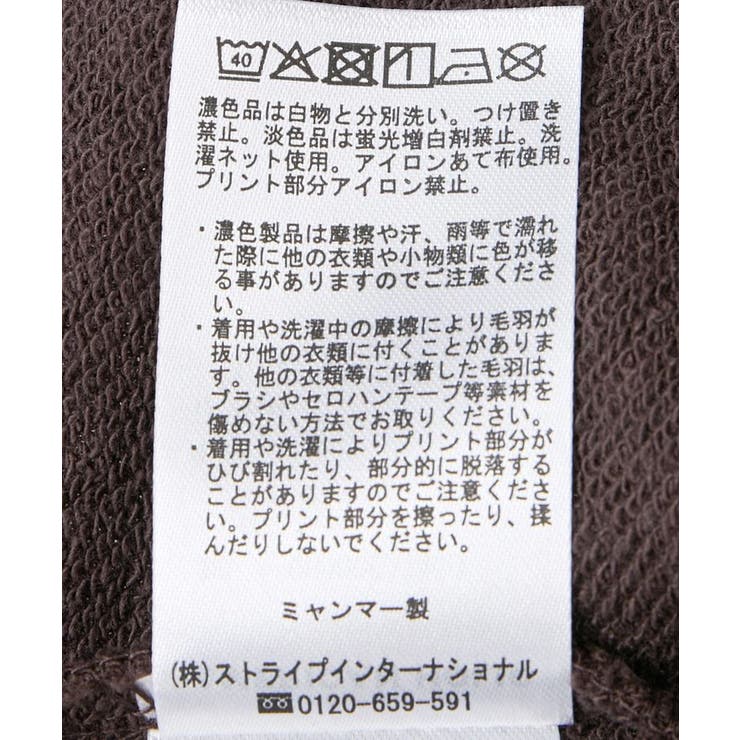 40
濃色品は白物と分別洗い。つけ置き
禁止。淡色品は蛍光増白剤禁止。洗
濯ネット使用。アイロンあて布使用。
プリント部分アイロン禁止。
・濃色製品は摩擦や汗、雨等で濡れ
た際に他の衣類や小物類に色が移
る事がありますのでご注意くださ
い。
・着用や洗濯中の摩擦により毛羽が
抜け他の衣類に付くことがありま
す。他の衣類等に付着した毛羽は、
ブラシやセロハンテープ等素材を
傷めない方法でお取りください。
・着用や洗濯によりプリント部分が
ひび割れたり、部分的に脱落する
ことがありますのでご注意くださ
い。プリント部分を擦ったり、揉
んだりしないでください。
ミャンマー製
(株)ストライプインターナショナル
0120-659-591